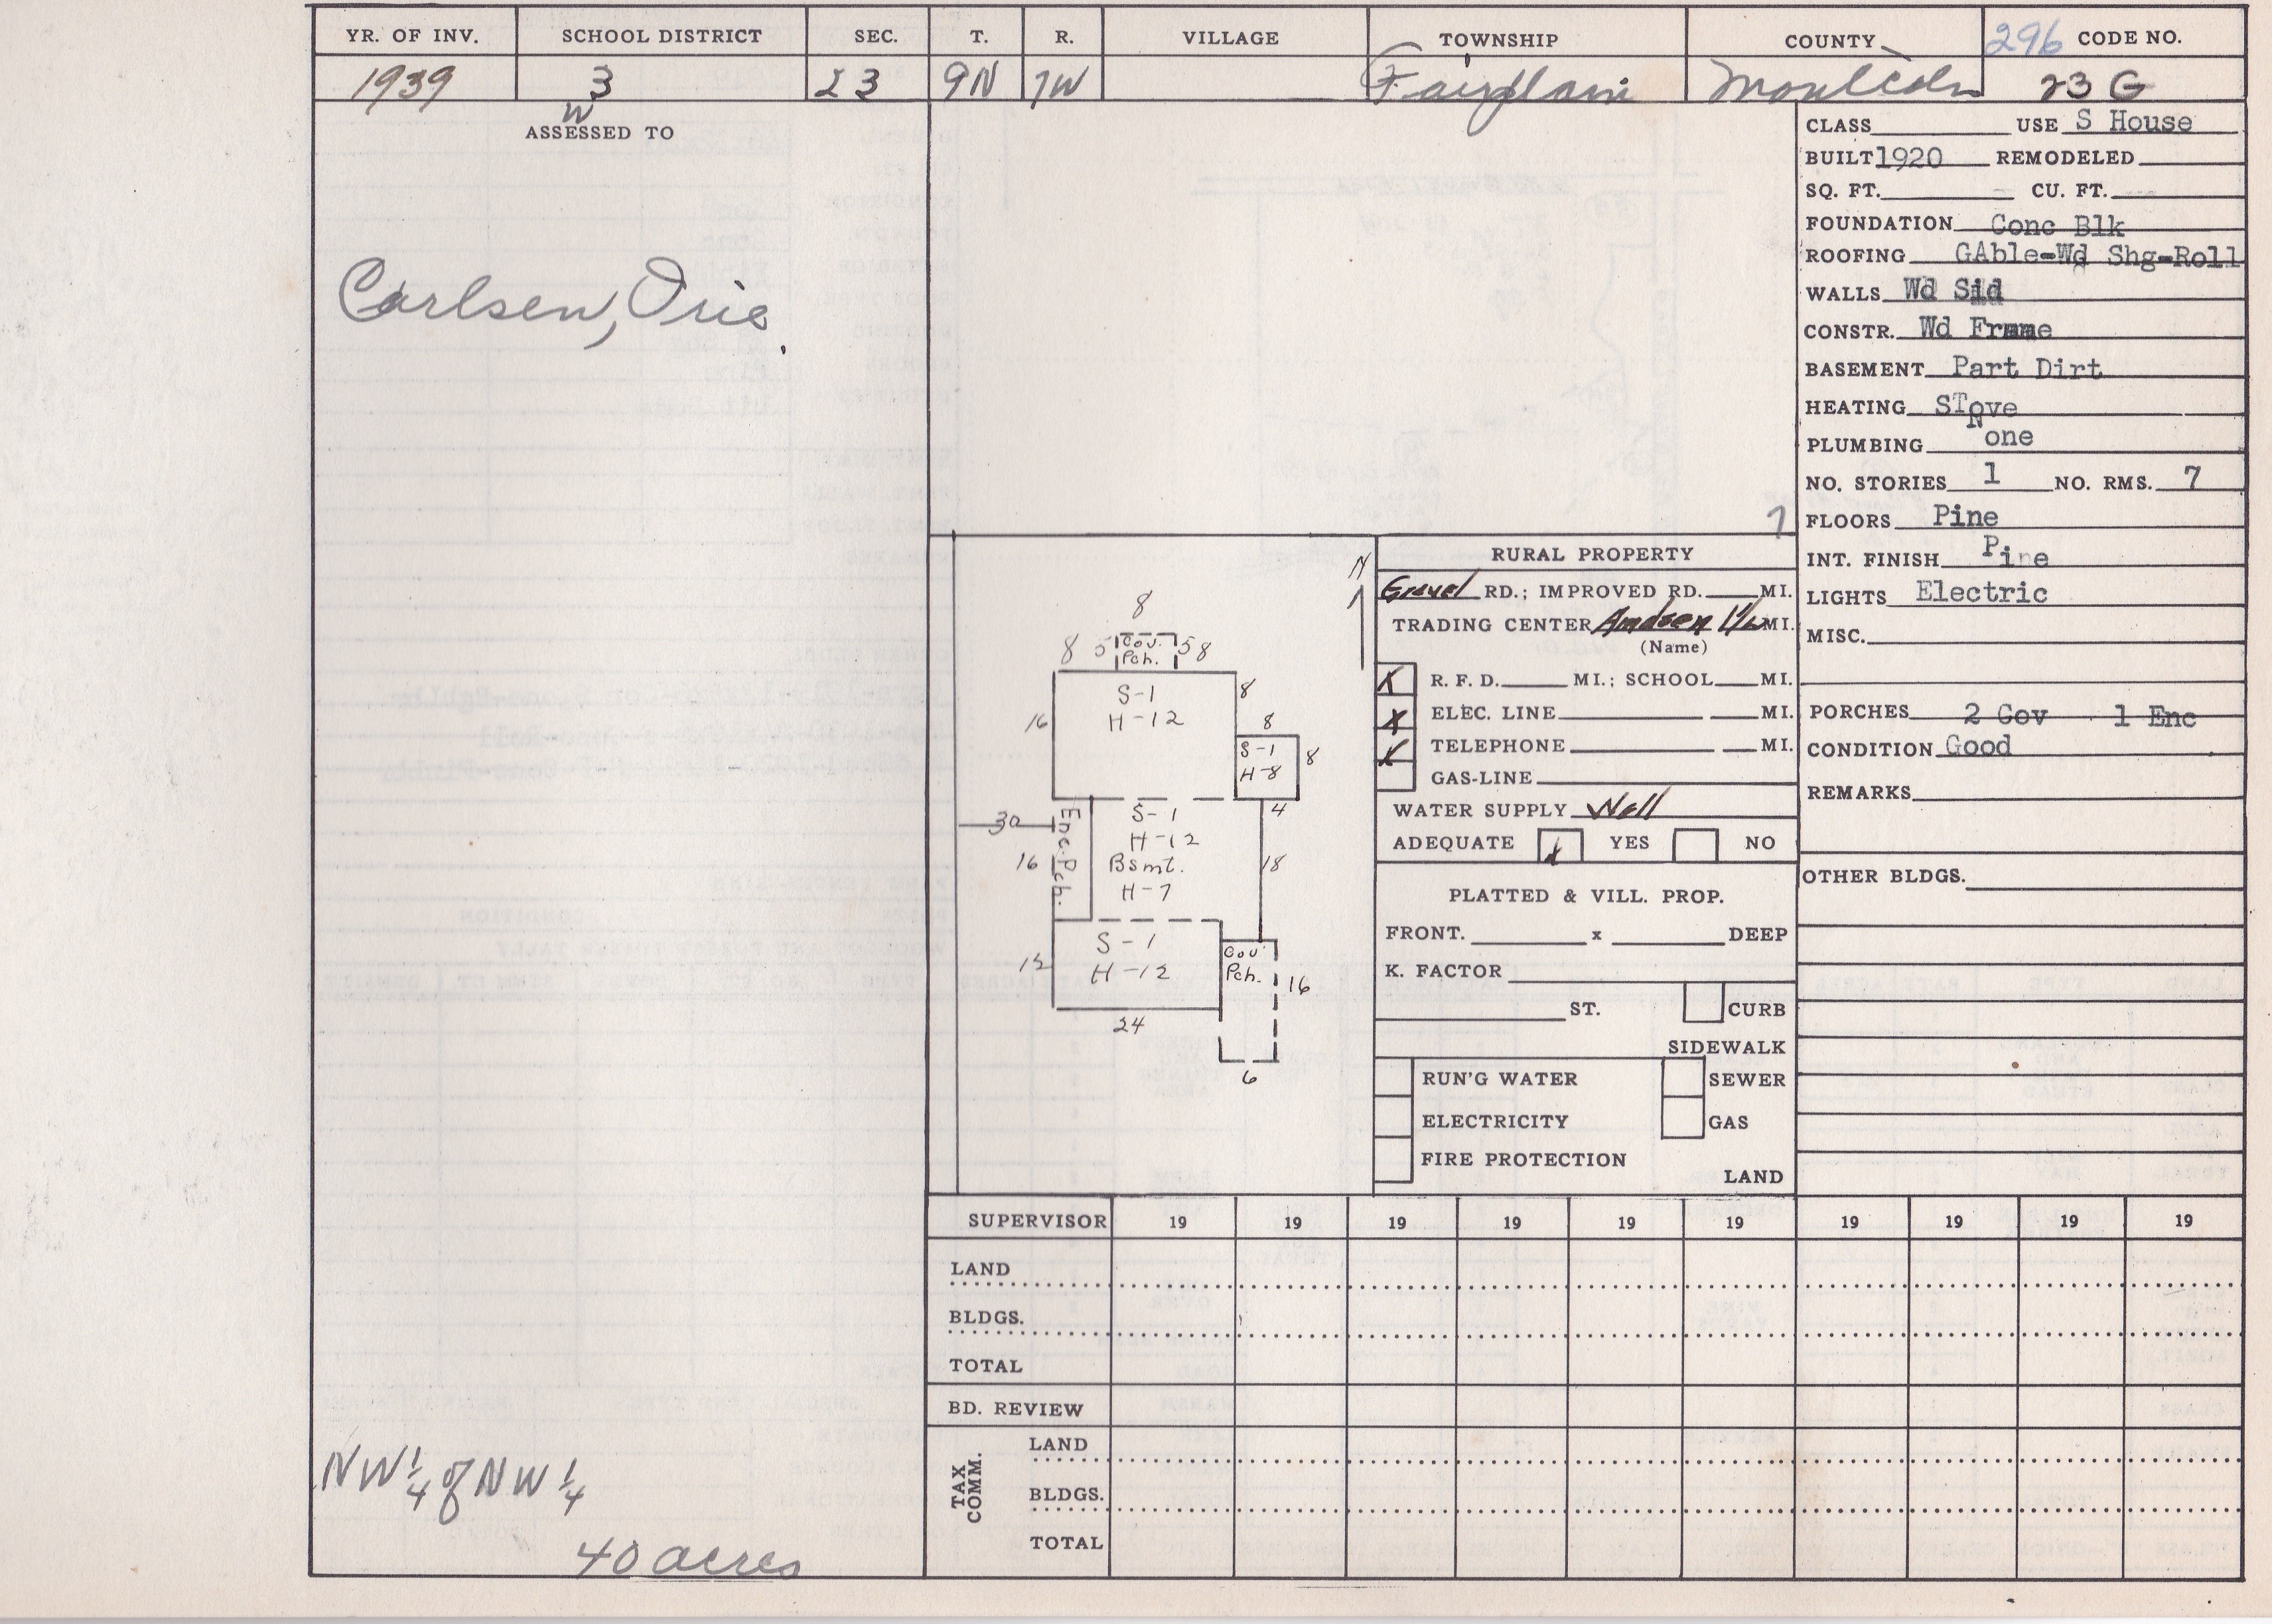 YR. OF INV. SCHOOL DISTRICT SEC. T. R. VILLAGE TOWNSHIP COUNTY 296 CODE NO.
1939 3 23 9N 7W Fairplain Montcalm 23 G
W
ASSESSED TO
Carlsen, Orie
NW 1/4 of NW 1/4
40 acres
7
N
8
8 5 Cov. Pch. 5 8
S-1
H-12
16
8
8
S-1
H-8
8
4
30
Enc. Pch.
16
S-1
H-12
Bsmt.
H-7
18
S-1
H-12
12
24
Cov Pch.
16
6
RURAL PROPERTY
Gravel RD.; IMPROVED RD. MI.
TRADING CENTER MI.
(Name)
X R. F. D. MI.; SCHOOL MI.
X ELEC. LINE MI.
X TELEPHONE MI.
GAS-LINE
WATER SUPPLY Well
ADEQUATE X YES NO
PLATTED & VILL. PROP.
FRONT. x DEEP
K. FACTOR
ST. CURB
SIDEWALK
RUN'G WATER SEWER
ELECTRICITY GAS
FIRE PROTECTION
LAND
CLASS USE S House
BUILT 1920 REMODELED
SQ. FT. CU. FT.
FOUNDATION Conc Blk
ROOFING GAble-Wd Shg-Roll
WALLS Wd Sid
CONSTR. Wd Frame
BASEMENT Part Dirt
HEATING STove
PLUMBING None
NO. STORIES 1 NO. RMS. 7
FLOORS Pine
INT. FINISH Pine
LIGHTS Electric
MISC.
PORCHES 2 Cov 1 Enc
CONDITION Good
REMARKS
OTHER BLDGS.
SUPERVISOR 19 19 19 19 19 19 19 19 19 19
LAND
BLDGS.
TOTAL
BD. REVIEW
TAX COMM.
LAND
BLDGS.
TOTAL